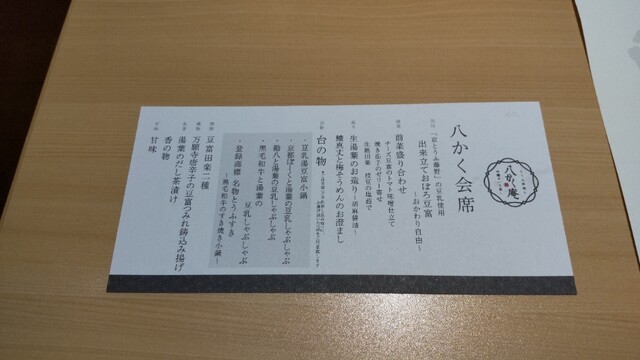 八かく庵
八かく会席
「京とうふ藤野」の豆乳使用
出来立ておぼろ豆富
～おかわり自由～
前菜盛り合わせ
チーズ豆富のトマト味噌仕立て
焼き茄子のゼリー寄せ
生麩田楽 枝豆の塩茹で
生湯葉のお造り～胡麻醤油～
鱧真丈と梅そうめんのお澄まし
台の物
・豆乳湯豆富小鍋
・京都ぽーくと湯葉の豆乳しゃぶしゃぶ
・鶏八と湯葉の豆乳しゃぶしゃぶ
・黒毛和牛と湯葉の
豆乳しゃぶしゃぶ
・登録商標 名物とうふすき
～黒毛和牛のすき焼き小鍋～
豆富田楽二種
万願寺唐辛子の豆富つみれ鋳込み揚げ
湯葉のだし茶漬け
香の物
甘味